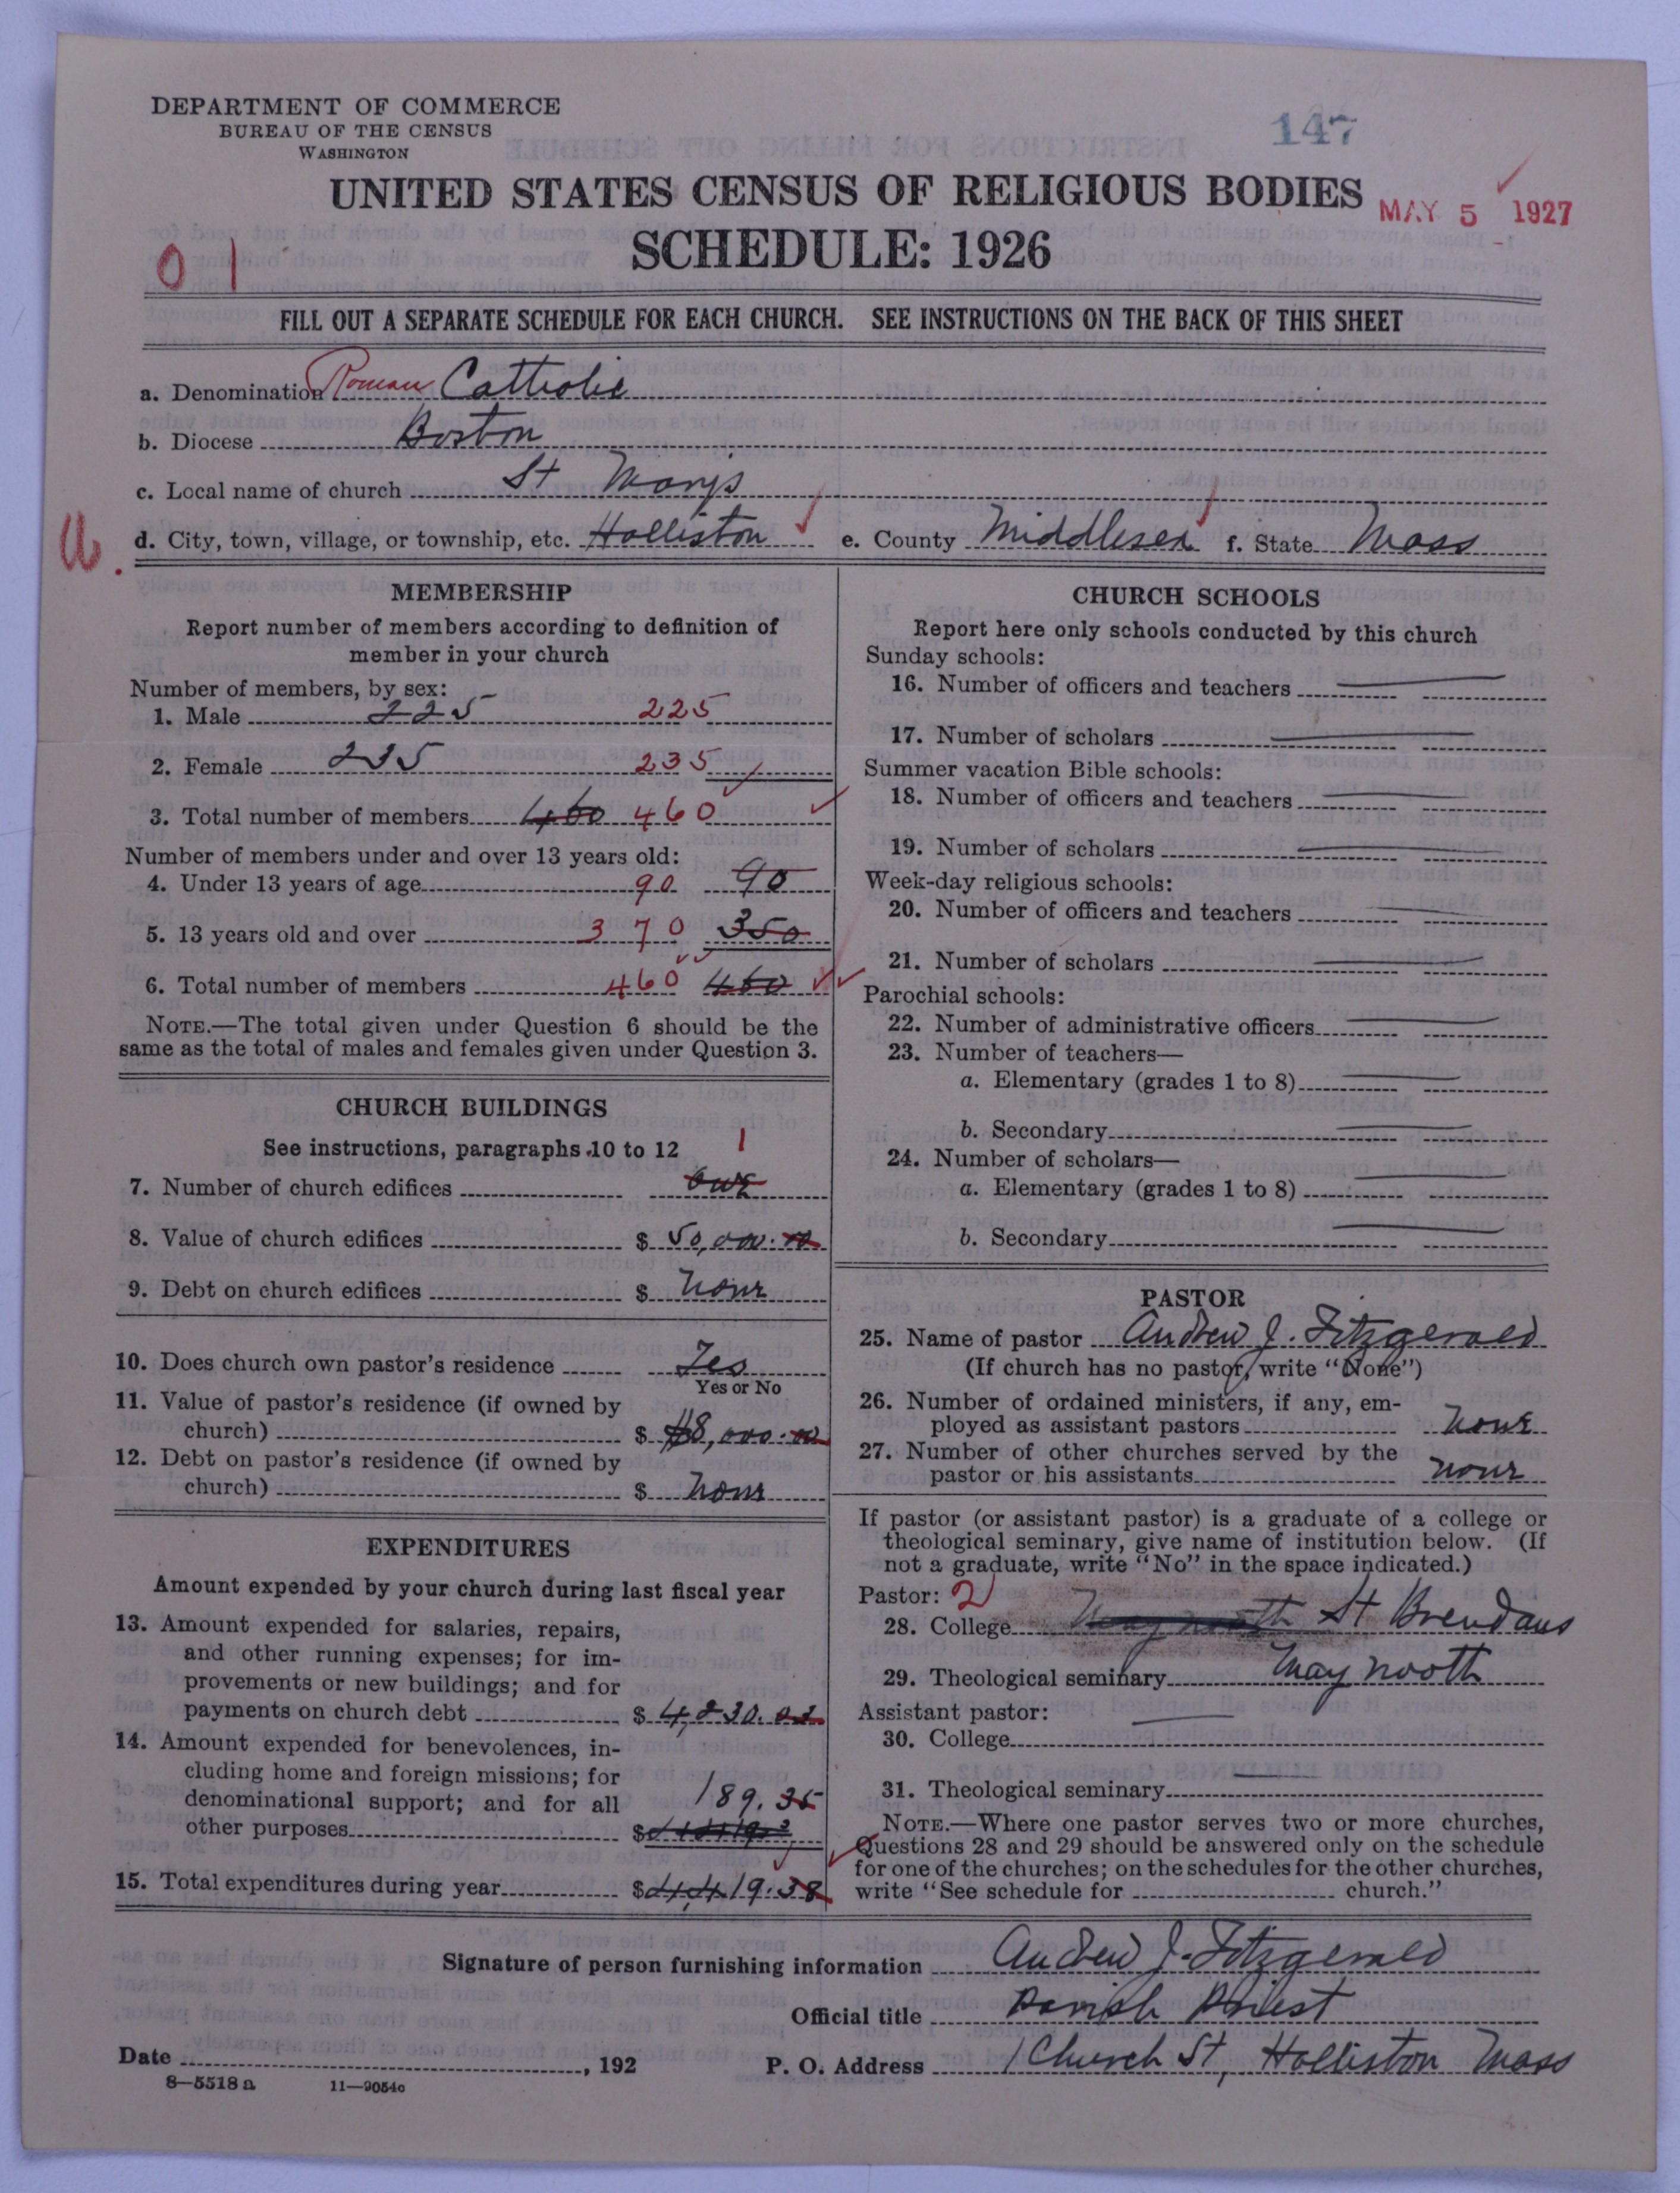 DEPARTMENT OF COMMERCE
BUREAU OF THE CENSUS
WASHINGTON
147
UNITED STATES CENSUS OF RELIGIOUS BODIES
MAY 5 1927
SCHEDULE: 1926
0 1
FILL OUT A SEPARATE SCHEDULE FOR EACH CHURCH. SEE INSTRUCTIONS ON THE BACK OF THIS SHEET
a. Denomination Roman Catholic
b. Diocese Boston
c. Local name of church St Mary's
d. City, town, village, or township, etc. Holliston e. County Middlesex f. State Mass
MEMBERSHIP
Report number of members according to definition of
member in your church
Number of members, by sex:
1. Male 225 225
2. Female 235 235
3. Total number of members 460 460
Number of members under and over 13 years old:
4. Under 13 years of age 90 90
5. 13 years old and over 370 350
6. Total number of members 460 460
NOTE.—The total given under Question 6 should be the
same as the total of males and females given under Question 3.
CHURCH BUILDINGS
See instructions, paragraphs 10 to 12 1
7. Number of church edifices one
8. Value of church edifices $ 50,000.00
9. Debt on church edifices $ none
10. Does church own pastor's residence Yes
Yes or No
11. Value of pastor's residence (if owned by
church) $ 8,000.00
12. Debt on pastor's residence (if owned by
church) $ none
EXPENDITURES
Amount expended by your church during last fiscal year
13. Amount expended for salaries, repairs,
and other running expenses; for im-
provements or new buildings; and for
payments on church debt $ 4,230.03
14. Amount expended for benevolences, in-
cluding home and foreign missions; for
denominational support; and for all 189.35
other purposes $
15. Total expenditures during year $ 4,419.38
CHURCH SCHOOLS
Report here only schools conducted by this church
Sunday schools:
16. Number of officers and teachers
17. Number of scholars
Summer vacation Bible schools:
18. Number of officers and teachers
19. Number of scholars
Week-day religious schools:
20. Number of officers and teachers
21. Number of scholars
Parochial schools:
22. Number of administrative officers
23. Number of teachers—
a. Elementary (grades 1 to 8)
b. Secondary
24. Number of scholars—
a. Elementary (grades 1 to 8)
b. Secondary
PASTOR
25. Name of pastor Andrew J. Fitzgerald
(If church has no pastor, write "None")
26. Number of ordained ministers, if any, em-
ployed as assistant pastors none
27. Number of other churches served by the
pastor or his assistants none
If pastor (or assistant pastor) is a graduate of a college or
theological seminary, give name of institution below. (If
not a graduate, write "No" in the space indicated.)
Pastor: 2
28. College Maynooth St Brendans
29. Theological seminary Maynooth
Assistant pastor:
30. College
31. Theological seminary
NOTE.—Where one pastor serves two or more churches,
Questions 28 and 29 should be answered only on the schedule
for one of the churches; on the schedules for the other churches,
write "See schedule for church."
Signature of person furnishing information Andrew J. Fitzgerald
Official title Parish Priest
Date , 192 P. O. Address 1 Church St, Holliston Mass
8—5518 a 11—9054c